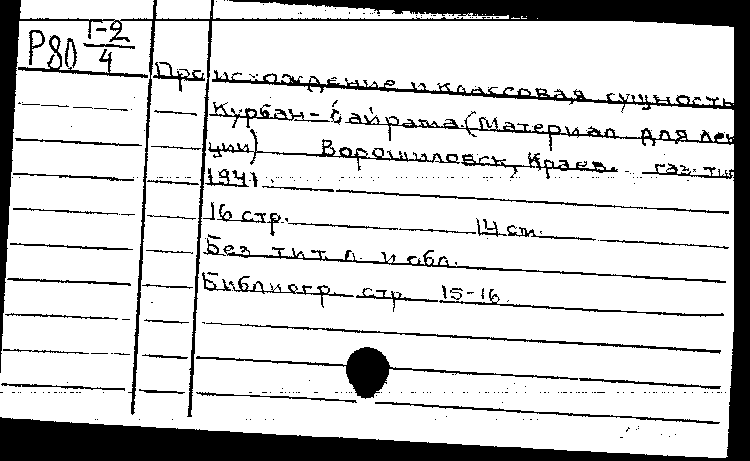 Р80 Г-2/4
Происхождение и классовая сущность
Курбан-байрама (Материал для лек
ции) Ворошиловск, Краев. газ. тип
1941.
16 стр. 14 см.
Без тит. л. и обл.
Библиогр. стр. 15-16.